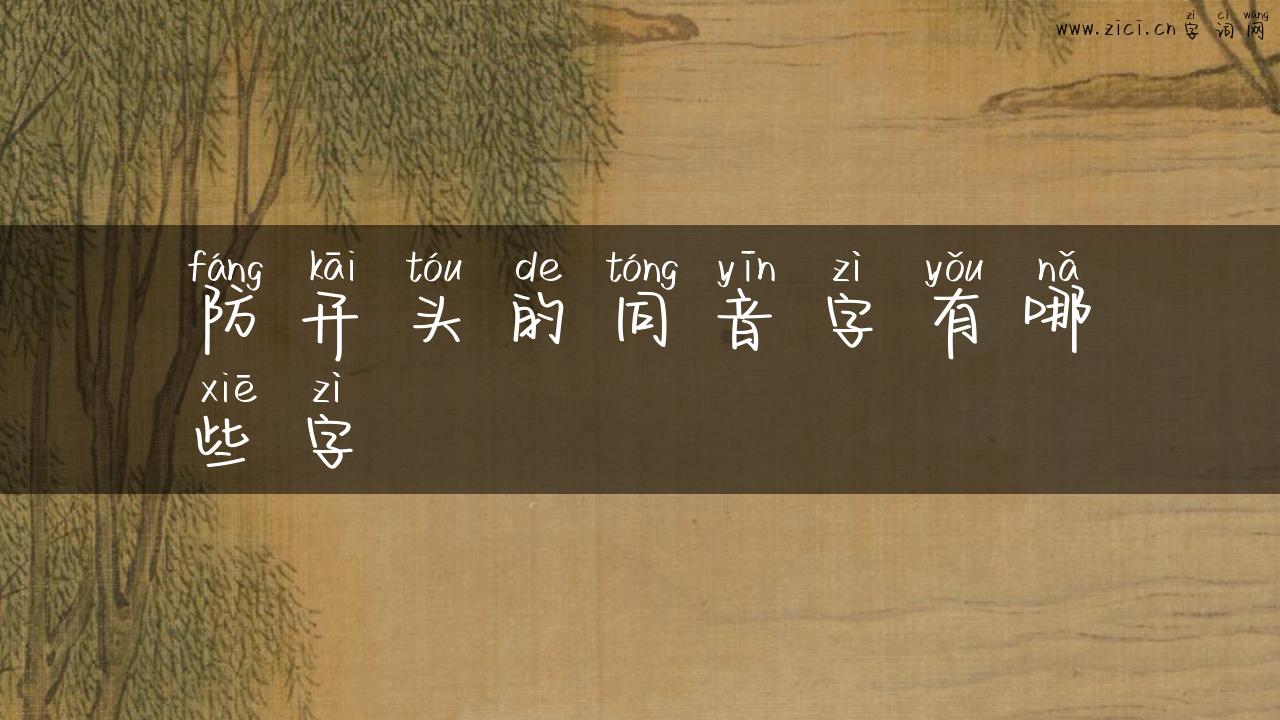 zì cí wǎng
www.zici.cn字词网
fáng kāi tóu de tóng yīn zì yǒu nǎ
防开头的同音字有哪
xiē zì
些字